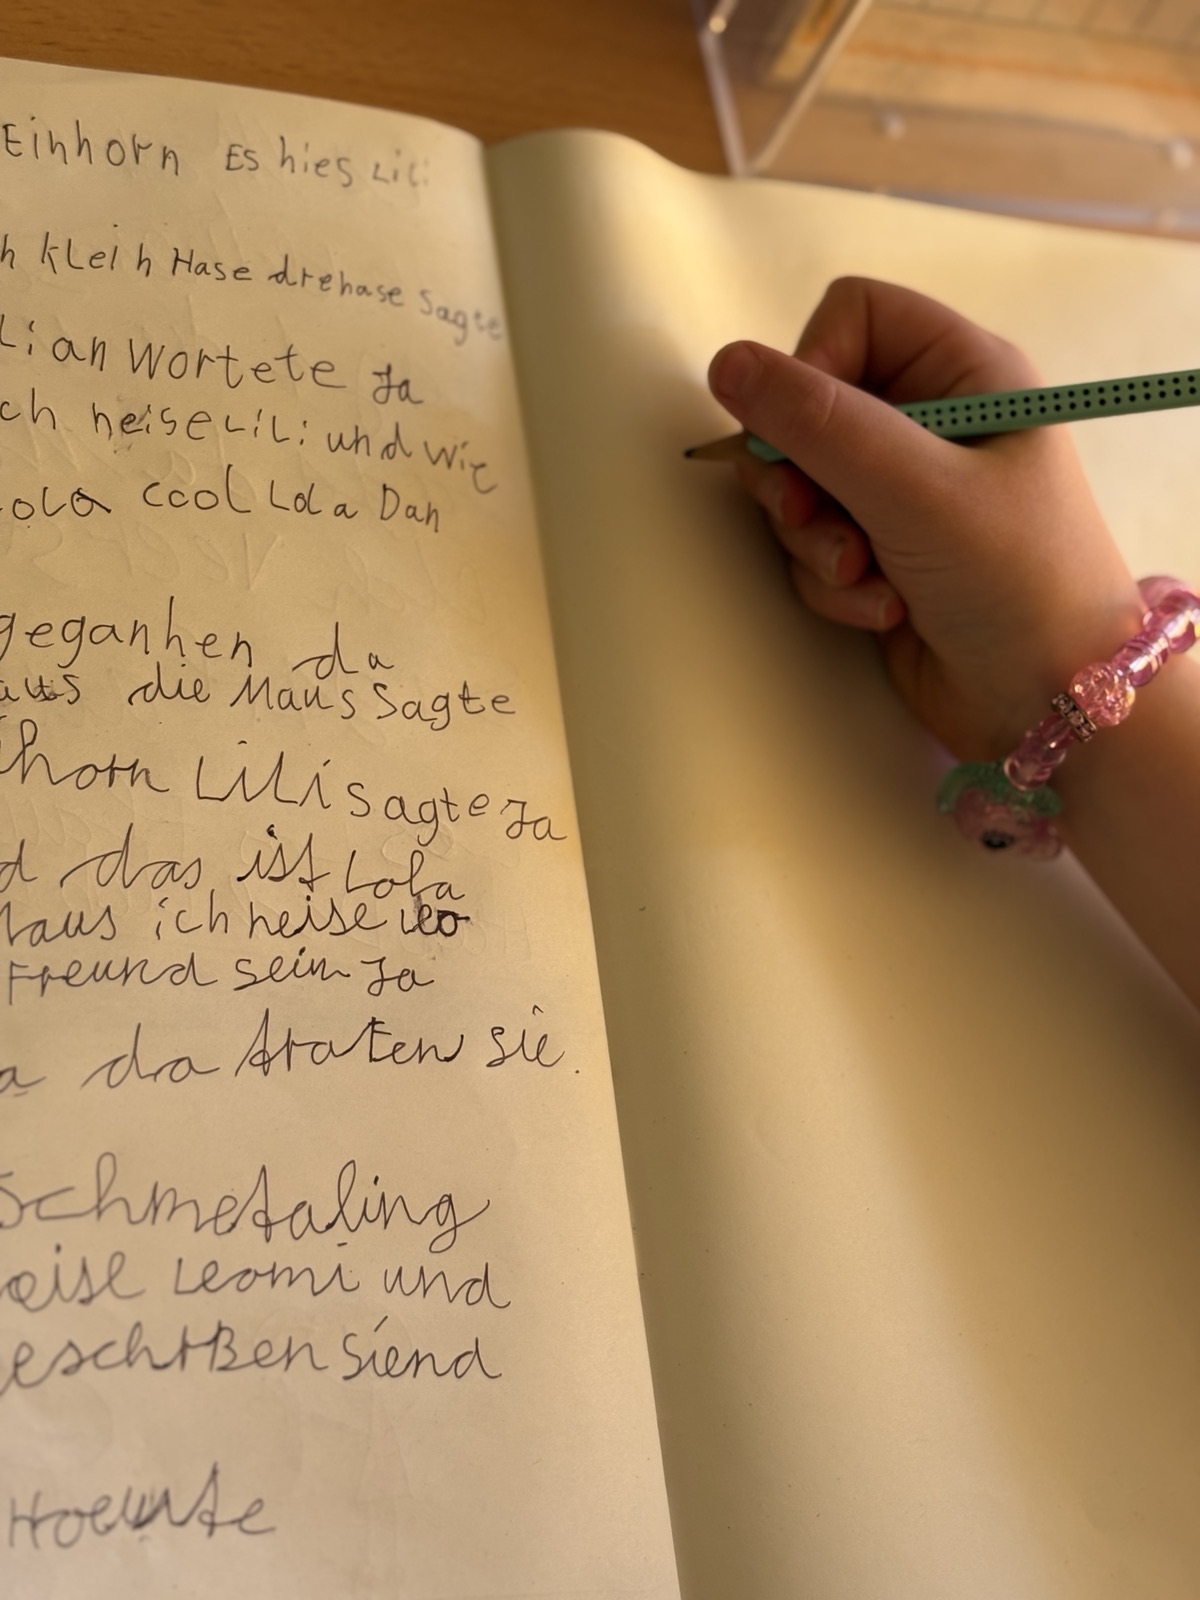 Einhorn Es hies Lili
h klein Hase drehase sagte
Li an Wortete Ja
ch heise Lili und wie
ola cool Lola Dan
geganhen da
aus die Maus sagte
horn Lili sagte Ja
d das ist Lola
aus ich heise Leo
Freund sein Ja
a da traten sie.
Schmetaling
eise Leomi und
siend